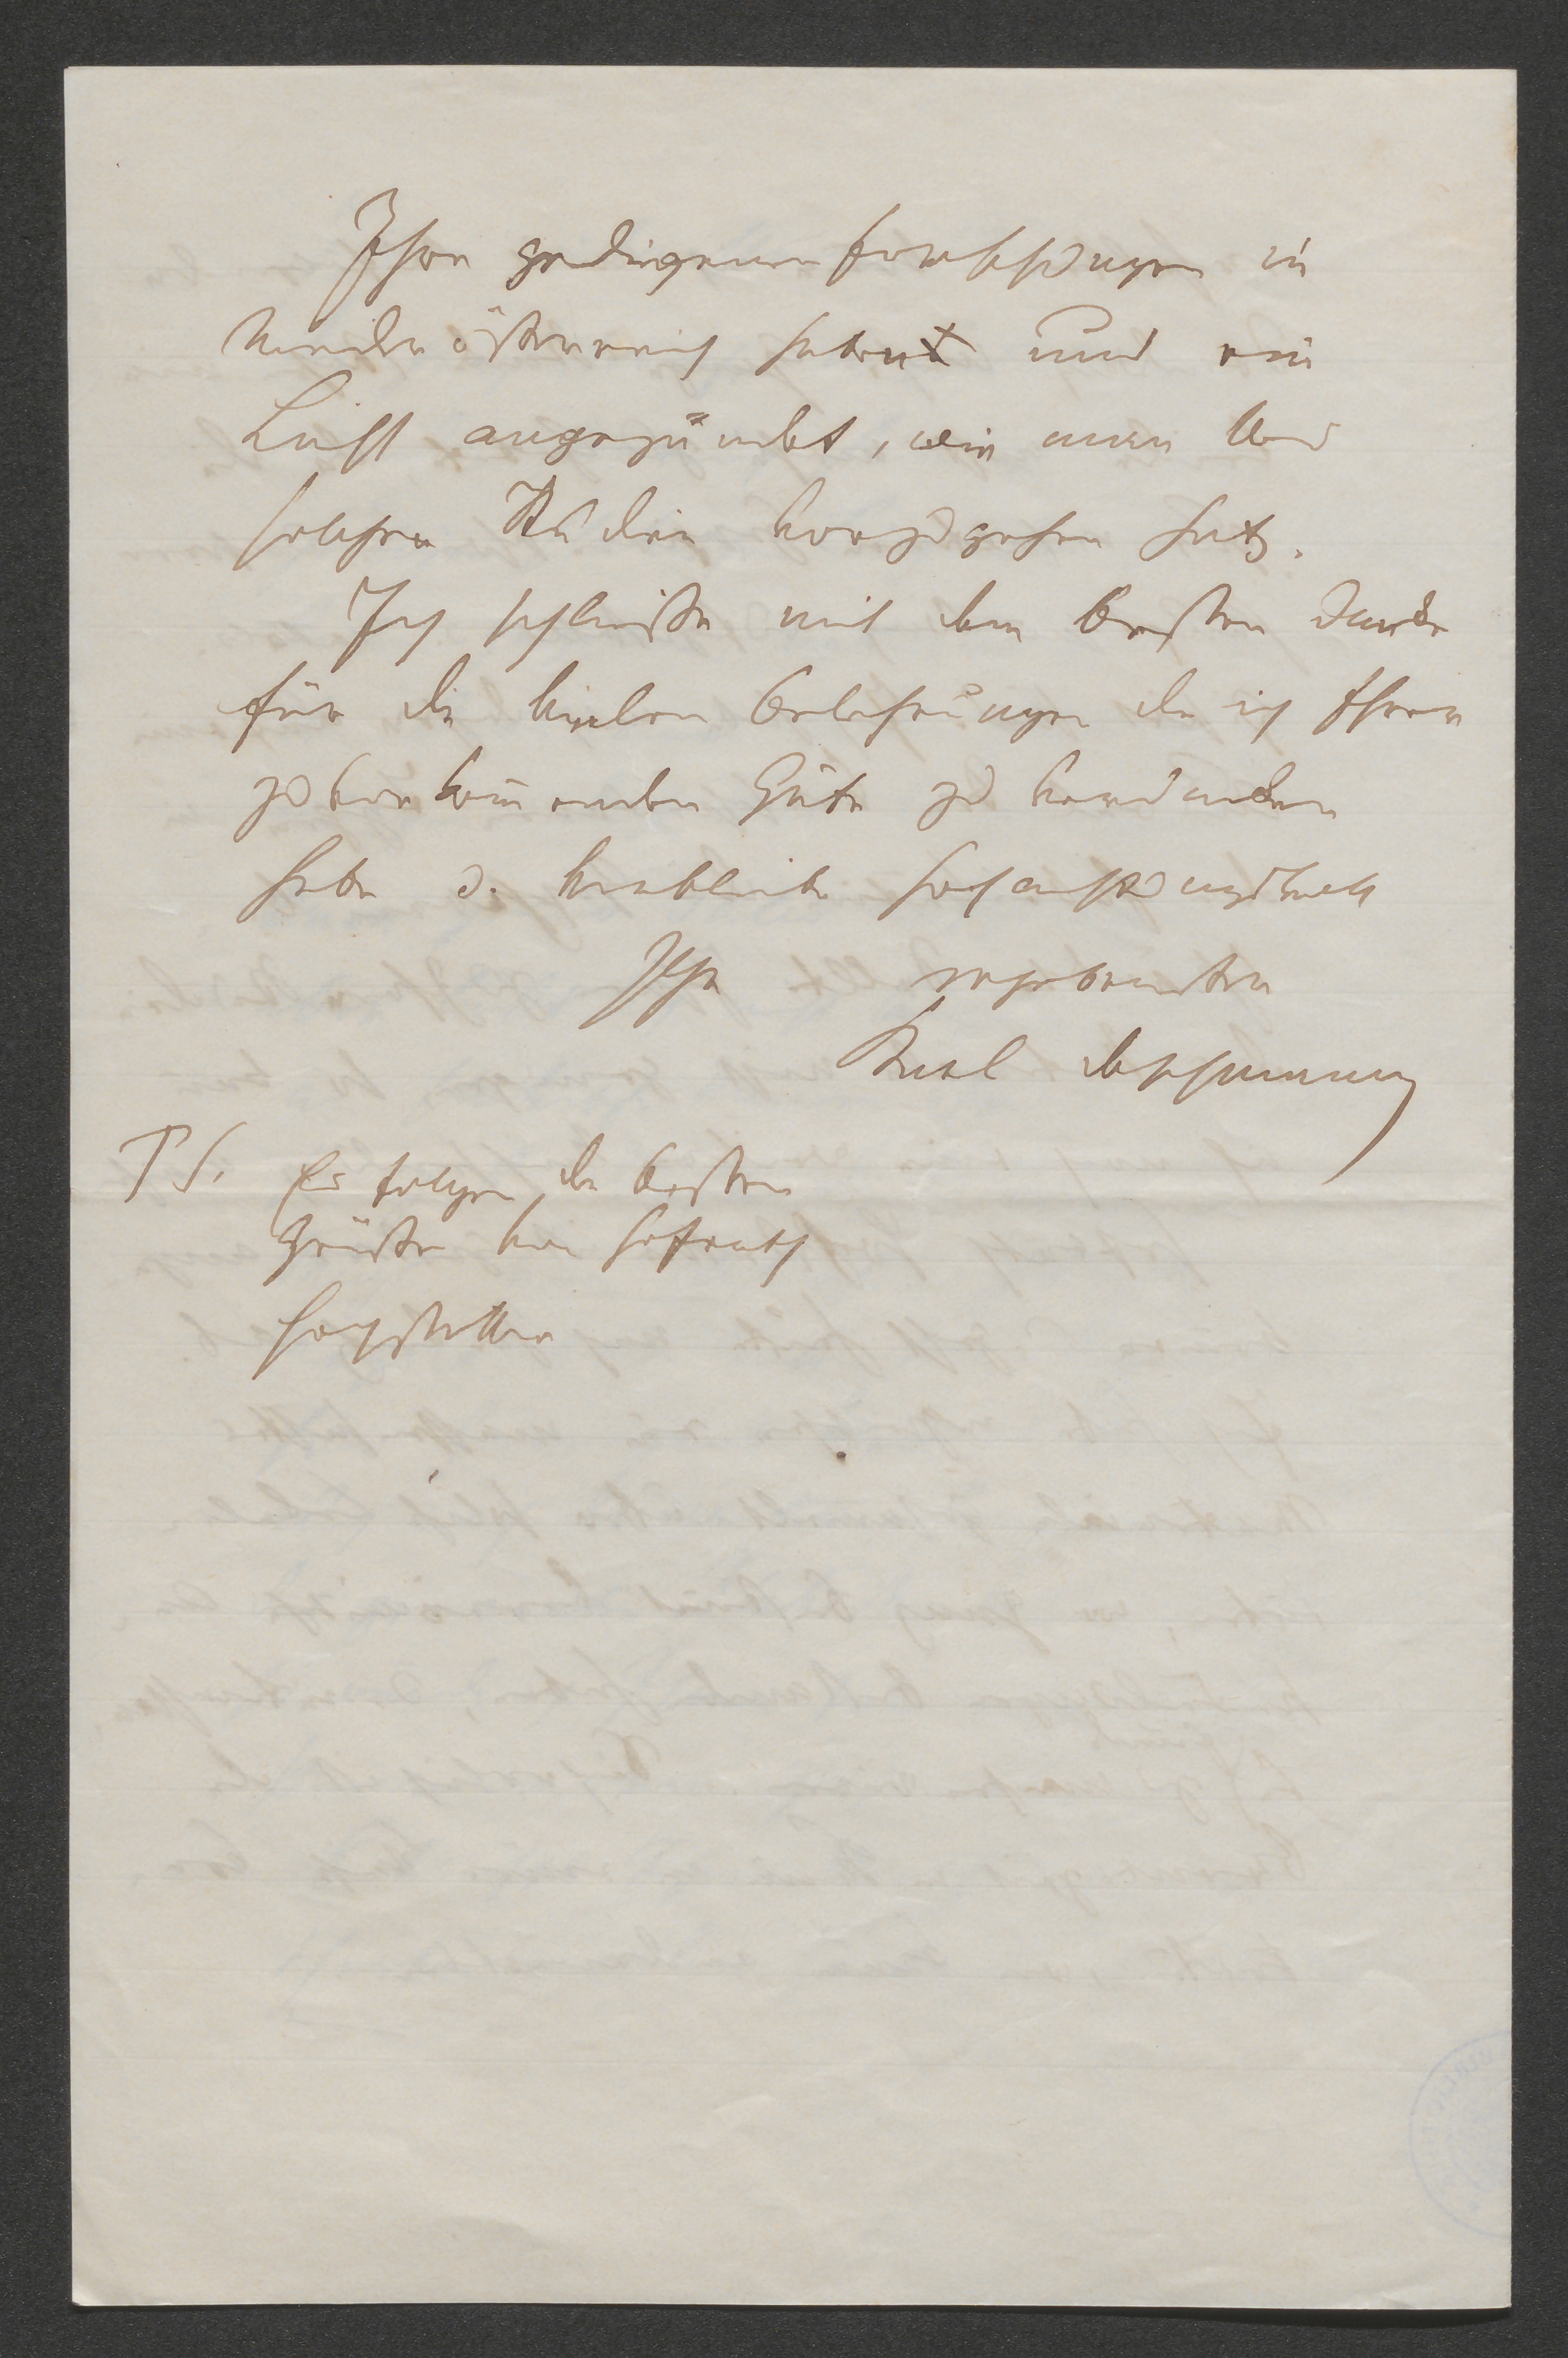 Ihre gediegenen Forschungen in
Niederösterreich haben uns ein
Licht angezündet, wie man bei
solchen Studien vorzugehen hat.
Ich schließe mit dem besten Danke
für die vielen Belehrungen die ich Ihrer
zuvorkom̅enden Güte zu verdanken
habe u. verbleibe hochachtungsvoll
Ihr ergebenster
Karl Deschmann
PS. Es folgen die besten
Grüße von Hofrath
Hochstetter